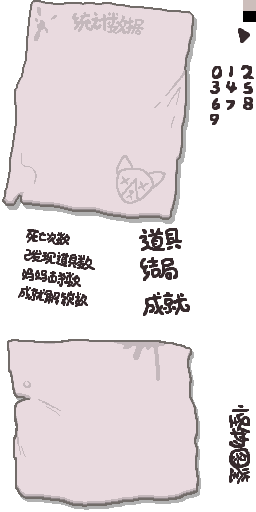 统计数据
0 1 2
3 4 5
6 7 8
9
死亡次数
已发现道具数
妈妈击杀数
成就解锁数
道具
结局
成就